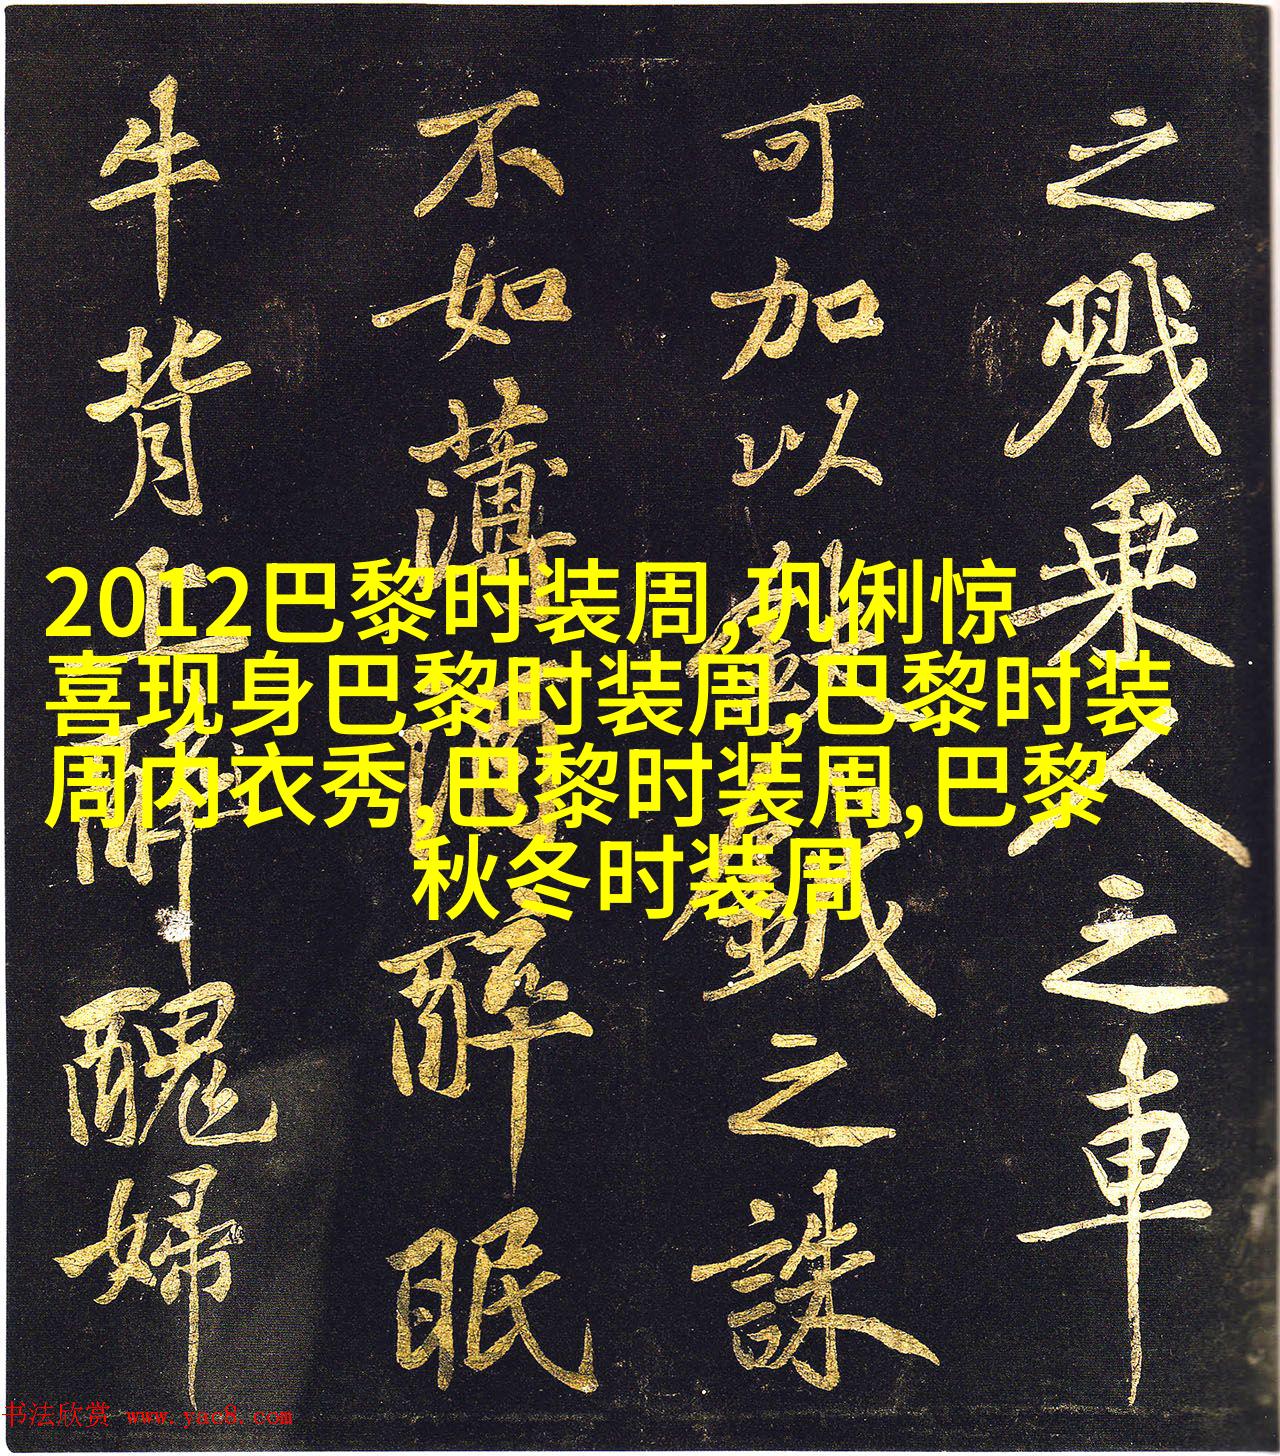 之戮乘人之車
可加以鈇鉞之誅
不如薄酒醉眠
牛背上醉醜婦
2012巴黎时装周,巩俐惊
喜现身巴黎时装周,巴黎时装
周内衣秀,巴黎时装周,巴黎
秋冬时装周
书法欣赏 www.yac8.com